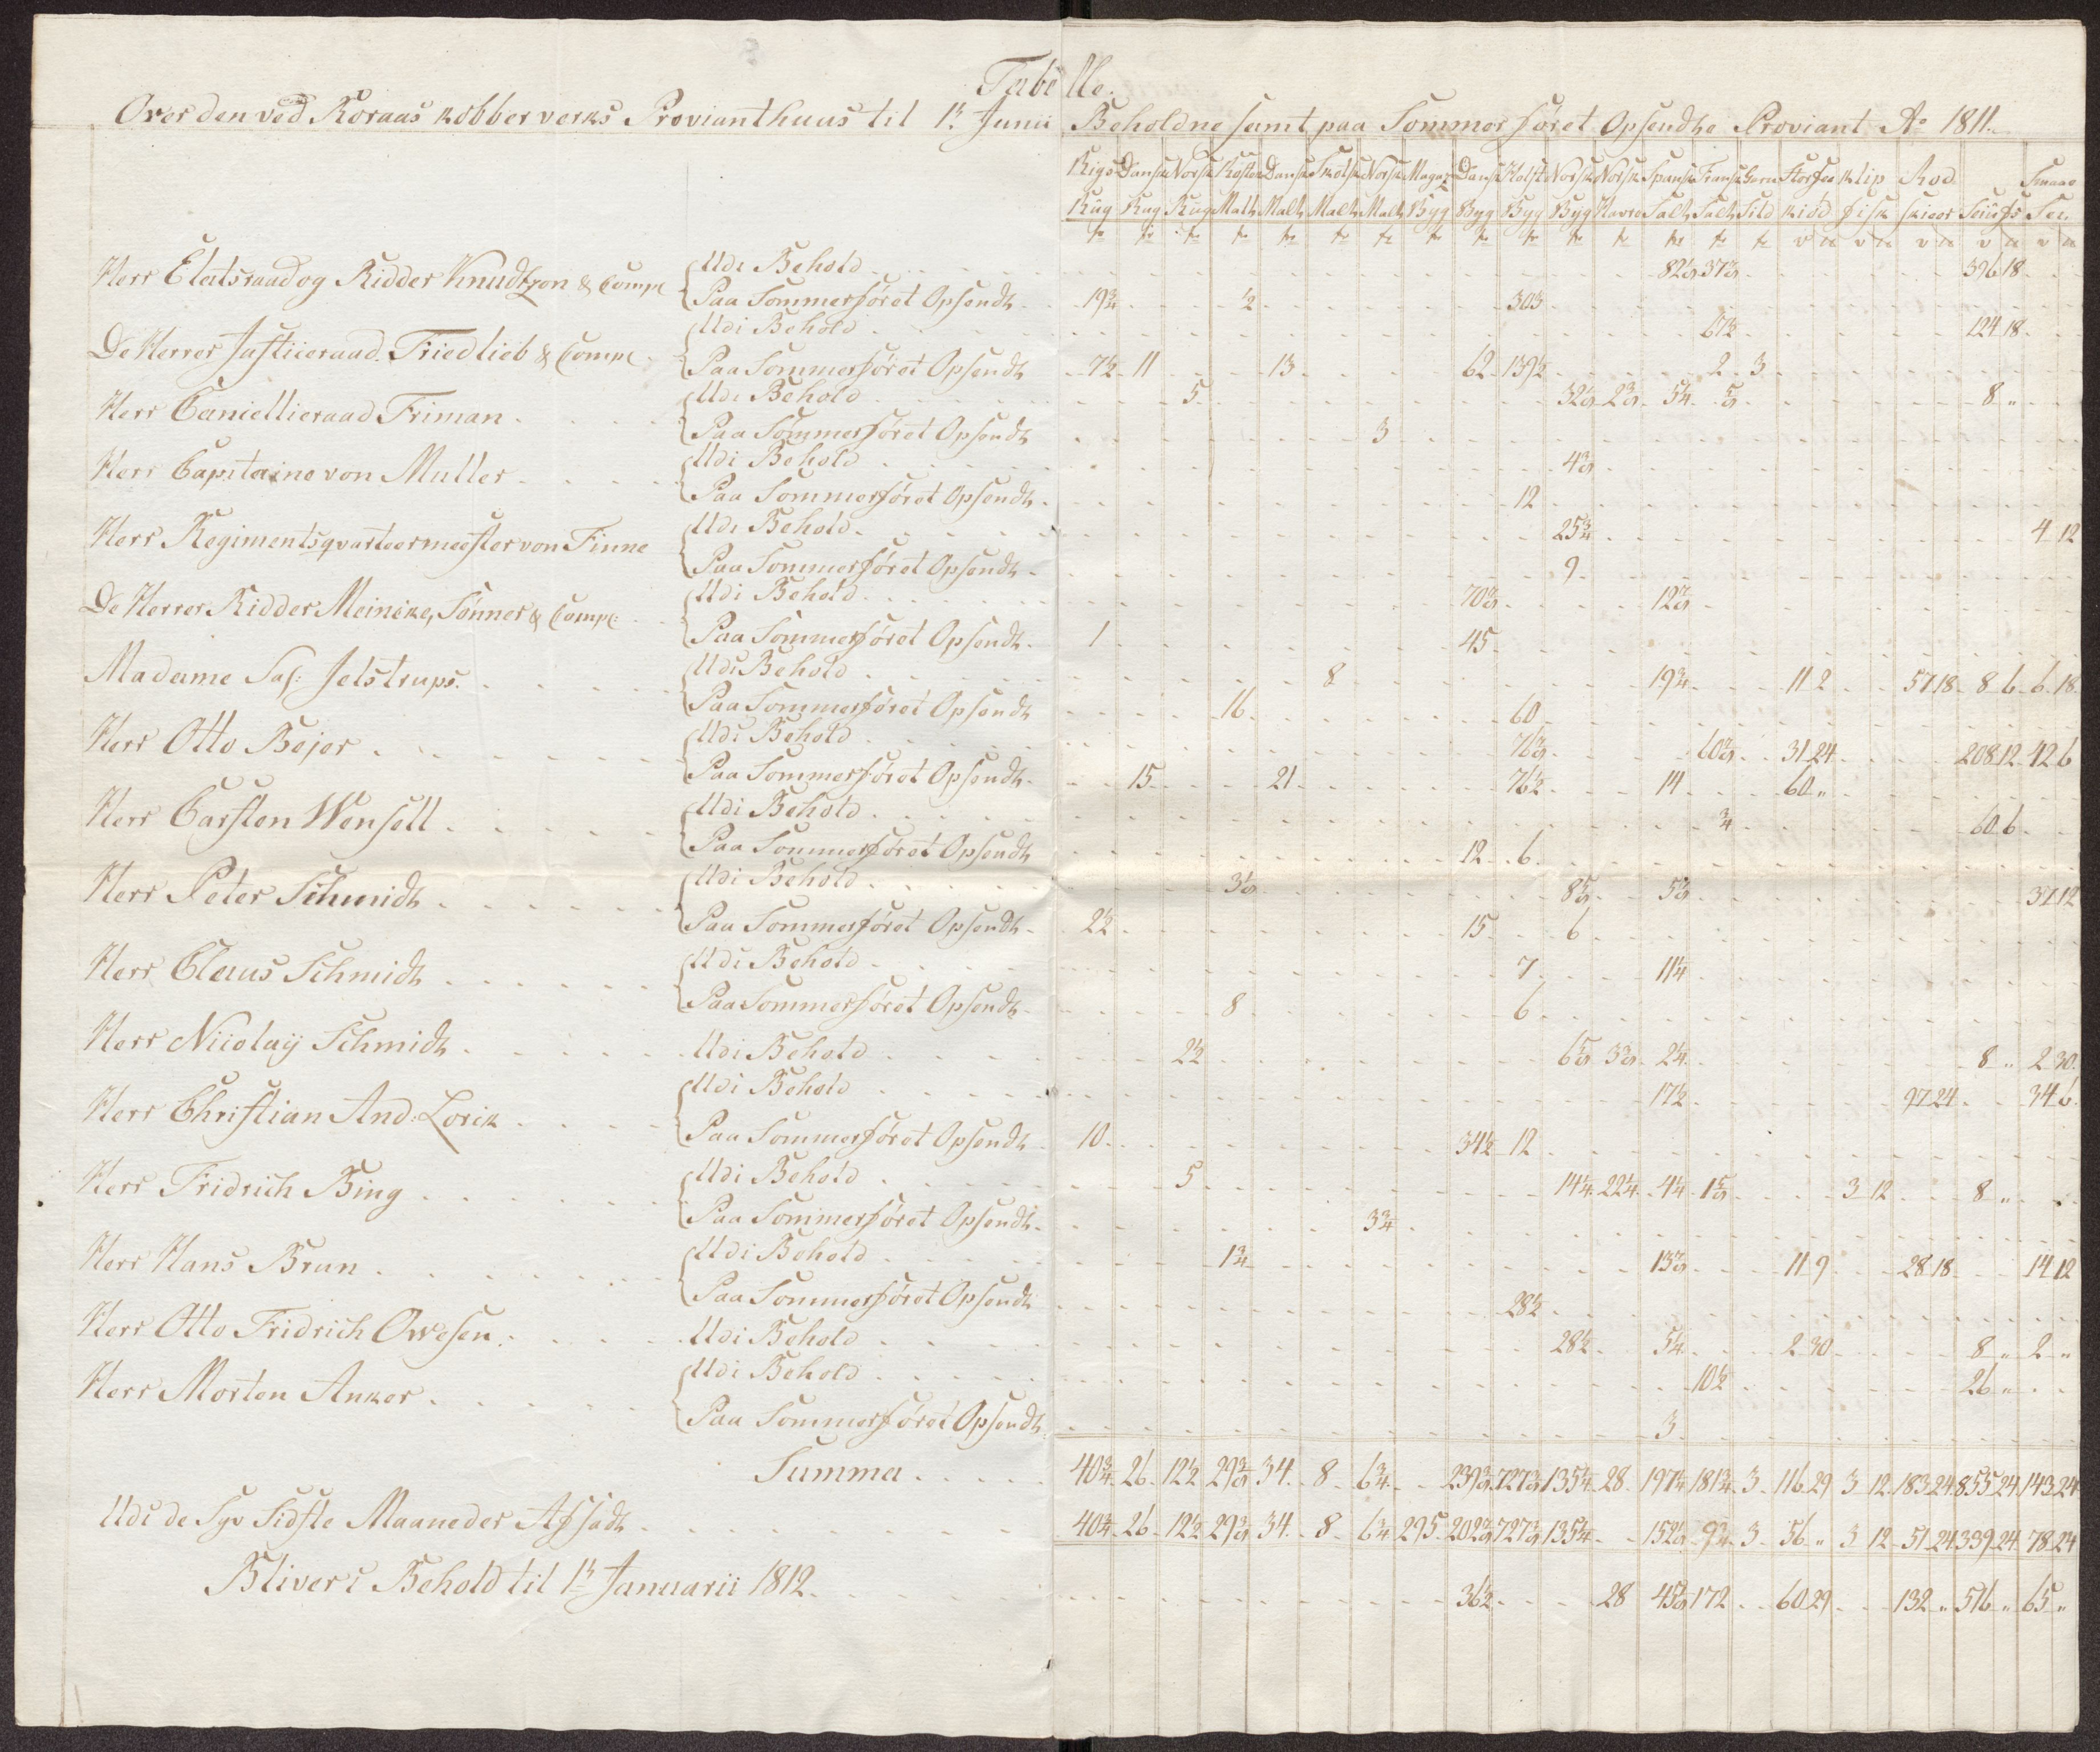 Tabelle.
Over den ved Roraas Kobberverks Provianthuus til 1te Junii Beholdne samt paa Sommerføret Opsendte Proviant Ao 1811.
Rigs Dansk Norsk Dansk Skotsk Norsk Magaz Dansk Holst Norsk Norsk Spansk Fransk Klip Rod Smaae
Rug Rug Rug Malt Malt Malt Malt Byg Byg Byg Byg Havre Salt Salt Sild kiød fisk skieer Sei
Herr Etatsraad og Ridder Knudtzon & Comp
Udi Behold 82 1/8 37 396 18
Paa Sommerføret Opsendt 19 3/4 1/2 303
De Herrer Justiceraad Friedlieb & Comp
Udi Behold 67 1/2 124 18
Paa Sommerføret Opsendt 7 1/2 11 13 62 139 1/2 2 3
Herr Cancellieraad Friman
Udi Behold 5 32 2 5 1/4 8 "
Paa Sommerføret Opsendt 3
Herr Capitaine von Muller
Udi Behold 4
Paa Sommerføret Opsendt 12
Herr Regimentsqvarteermeester von Finne
Udi Behold 25 3/4 4 12
Paa Sommerføret Opsendt 9
De Herrer Ridder Meincke, Sønner & Comp
Udi Behold 70 12
Paa Sommerføret Opsendt 1 45
Madame Sal: Jelstrups
Udi Behold 8 19 3/4 11 2 57 18 8 6 6 18
Paa Sommerføret Opsendt 16 60
Herr Otto Bejer
Udi Behold 76 60 31 24 208 12 42 6
Paa Sommerføret Opsendt 15 21 76 1/2 14 60 "
Herr Carsten Wensell
Udi Behold 3/4 60 6
Paa Sommerføret Opsendt 12 6
Herr Peter Schmidt
Udi Behold 3 8 5 37 12
Paa Sommerføret Opsendt 2 1/2 15 6
Herr Claus Schmidt
Udi Behold 7 11 1/4
Paa Sommerføret Opsendt 8 6
Herr Nicolaij Schmidt
Udi Behold 2 1/2 6 3 2 1/4 8 " 2 30
Herr Christian And: Lorck
Udi Behold 17 1/2 97 24 34 6
Paa Sommerføret Opsendt 10 34 1/2 12
Herr Fridrich Bing
Udi Behold 5 14 1/4 22 1/4 4 1/4 1 3 12 8 "
Paa Sommerføret Opsendt 3 3/4
Herr Hans Brun
Udi Behold 1 3/4 13 11 9 28 18 14 12
Paa Sommerføret Opsendt 28 1/2
Herr Otto Fridrich Owesen
Udi Behold 28 1/2 5 1/4 2 30 8 " 2 "
Herr Morten Anker
Udi Behold 10 1/2 26 "
Paa Sommerføret Opsendt 3
Summa 40 3/4 26 12 1/2 29 3/8 34 8 6 3/4 239 727 135 1/4 28 197 181 3/4 3 116 29 3 12 183 24 855 24 143 24
Udi de Syv Sidste Maaneder Afsadt 40 3/4 26 12 1/2 29 3/8 34 8 6 3/4 295 202 727 135 1/4 152 9 3/4 3 56 " 3 12 51 24 339 24 78 24
Bliver i Behold til 1te Januarii 1812 36 1/2 28 45 172 60 29 132 " 516 " 65 "